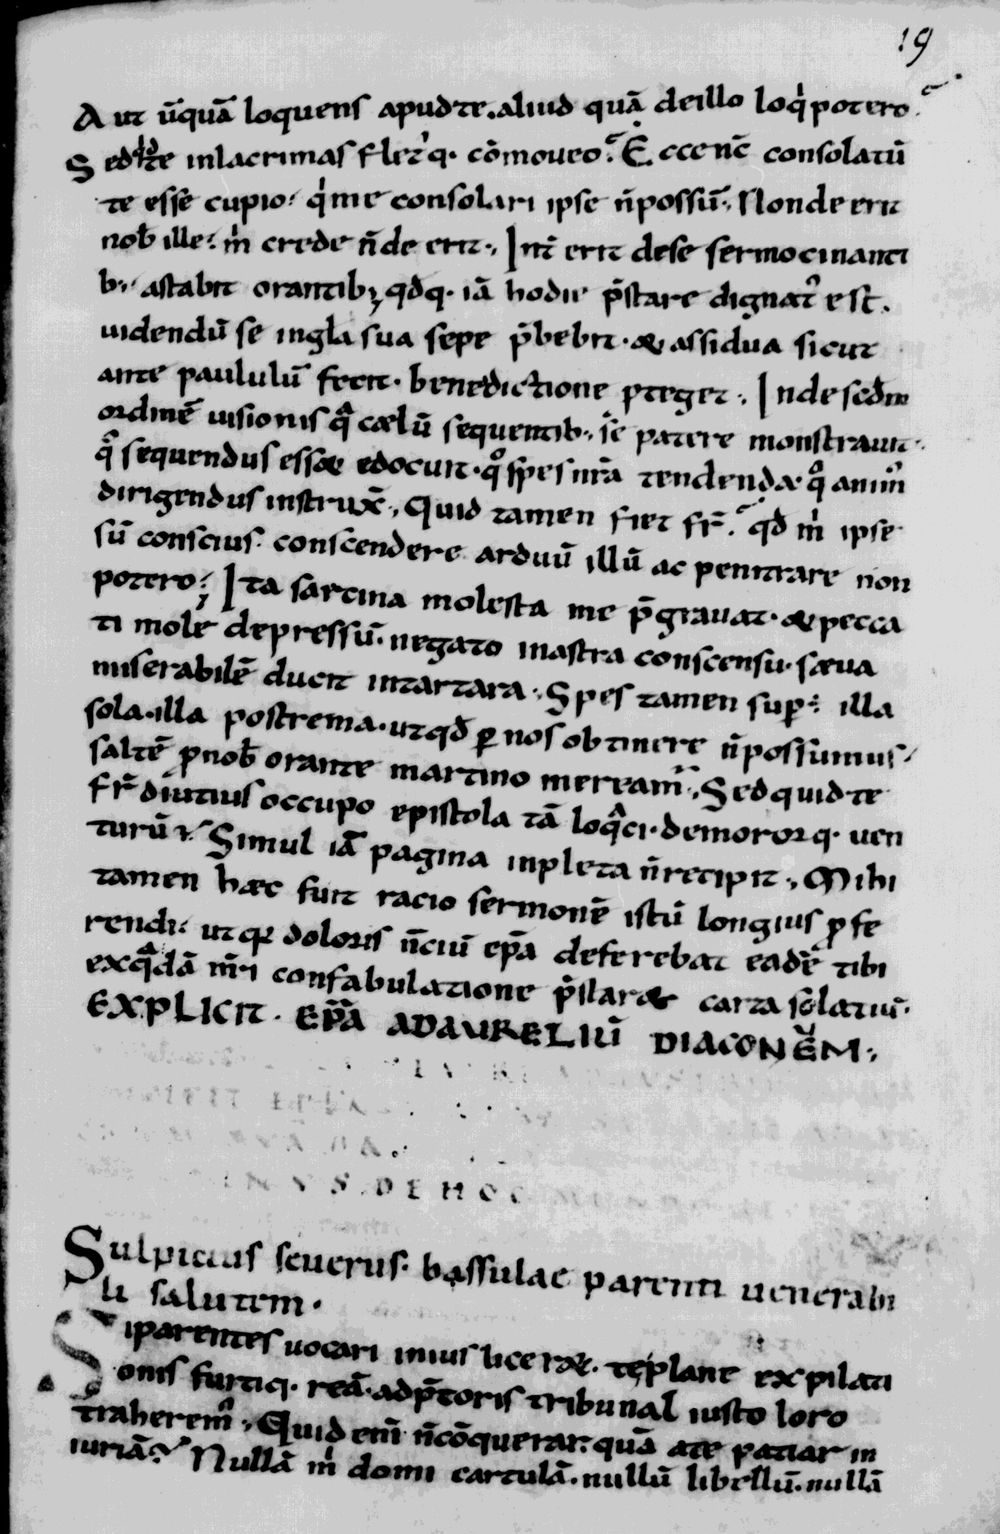 19
Aut ūquā loquens apud te. aliud quā de illo loqͥ potero.
Sed qͥd te in lacrimas fletꝰq· cōmoueo? Ecce nc̄ consolatū
te esse cupio. qͥ me consolari ipse n̄ possū. Non deerit
nob̄ ille. m̍ crede n̄ deerit. Int̄erit de se sermocinanti
b; astabit orantib; qd̄q· iā hodie p̄stare dignatꝰ est.
uidendū se in gl̄a sua sepe p̄bebit. & assidua sicut
ante paululū fecit. benedictione ꝓteget. Inde scd̄m
ordinē uisionis qͣ cælū sequentib; se patere monstrauit.
qͦ sequendus ess& edocuit. qͦ spes nr̄a tendenda. qͦ animꝰ
dirigendus instrux̄. Quid tamen fiet fr̄? qd̄ m̍ ipse
sū conscius. conscendere arduū illū ac penitrare non
potero; Ita sarcina molesta me p̄grauat. & pecca
ti mole depressū. negato in astra conscensu. sæua
miserabilē ducit in tartara. Spes tamen suꝑ· illa
sola. illa postrema. ut qd̄ ꝑ nos obtinere n̄ possumus.
saltē ꝓ nob̄ orante martino mereamꝰ. Sed quid te
fr̄ diutius occupo epistola tā loqͣci. demororq· uen
turū? Simul iā pagina inpleta n̄ recipit. Mihi
tamen hæc fuit racio sermonē istū longius ꝓfe
rendi. ut qꝛ doloris n̄ciū ep̄a deferebat eadē tibi
ex qͣdā n̄ri confabulatione p̄star& carta solatiū.
EXPLICIT. EP̄A AD AURELIŪ DIACONEM.
Sulpicius seuerus. bassulae parenti uenerabi
li salutem.
Si parentes uocari in ius licer&. te plane expilati
onis furtiq· reā. ad p̄toris tribunal iusto loro
traheremꝰ. Quid eni̅ n̄ cōquerar. quā a te patiar in
iuriā? Nullā m̍ domi cartulā. nullū libellū. nullā